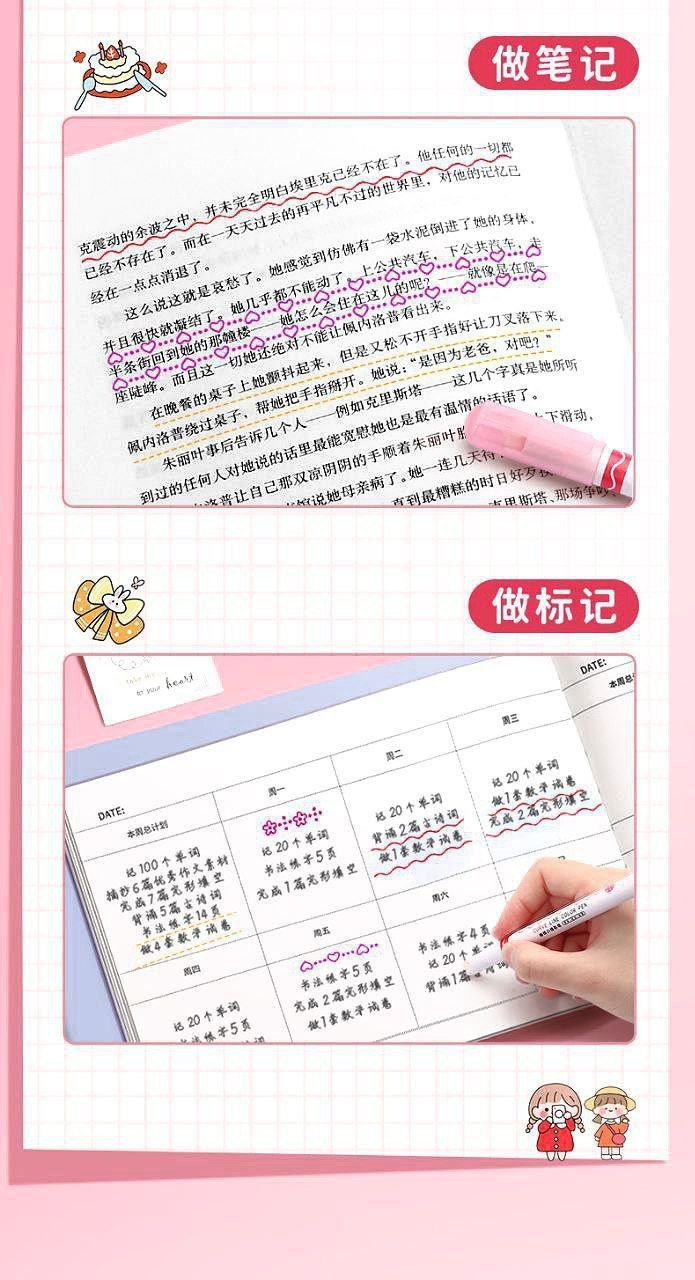 做笔记
克震动的余波之中，并未完全明白埃里克已经不在了。他任何的一切都
已经不存在了。而在一天天过去的再平凡不过的世界里，对他的记忆已
经在一点点消退了。
这么说这就是哀愁了。她感觉到仿佛有一袋水泥倒进了她的身体，
并且很快就凝结了。她几乎都不能动了。上公共汽车，下公共汽车，走
半条街回到她的那幢楼——她怎么会住在这儿的呢？——就像是在爬
座陡峰。而且这一切她还绝对不能让佩内洛普看出来。
在晚餐的桌子上她颤抖起来，但是又松不开手指好让刀叉落下来。
佩内洛普绕过桌子，帮她把手指掰开。她说：“是因为老爸，对吧？”
朱丽叶事后告诉几个人——例如克里斯塔——这几个字真是她所听
到过的任何人对她说的话里最能宽慰她也是最有温情的话语了。
洛普让自己那双凉阴阴的手顺着朱丽叶胳
上下滑动，
馆说她母亲病了。她一连几天待
直到最糟糕的时日好歹
克里斯塔、那场争吵
做标记
take the
to your heart
DATE:
本周总计划
周一
周二
周三
DATE:
本周总计
记100个单词
摘抄6篇优秀作文素材
完成7篇完形填空
背诵5篇古诗词
书法练字14页
做4套数学试卷
记20个单词
书法练字5页
完成1篇完形填空
记20个单词
背诵2篇古诗词
做1套数学试卷
记20个单词
做1套数学试卷
完成2篇完形填空
周四
周五
周六
记20个单词
书法练字5页
完成
书法练字5页
完成2篇完形填空
做1套数学试卷
书法练字4页
记20个单
背诵1篇古诗词
CURVE LINE COLOR PEN